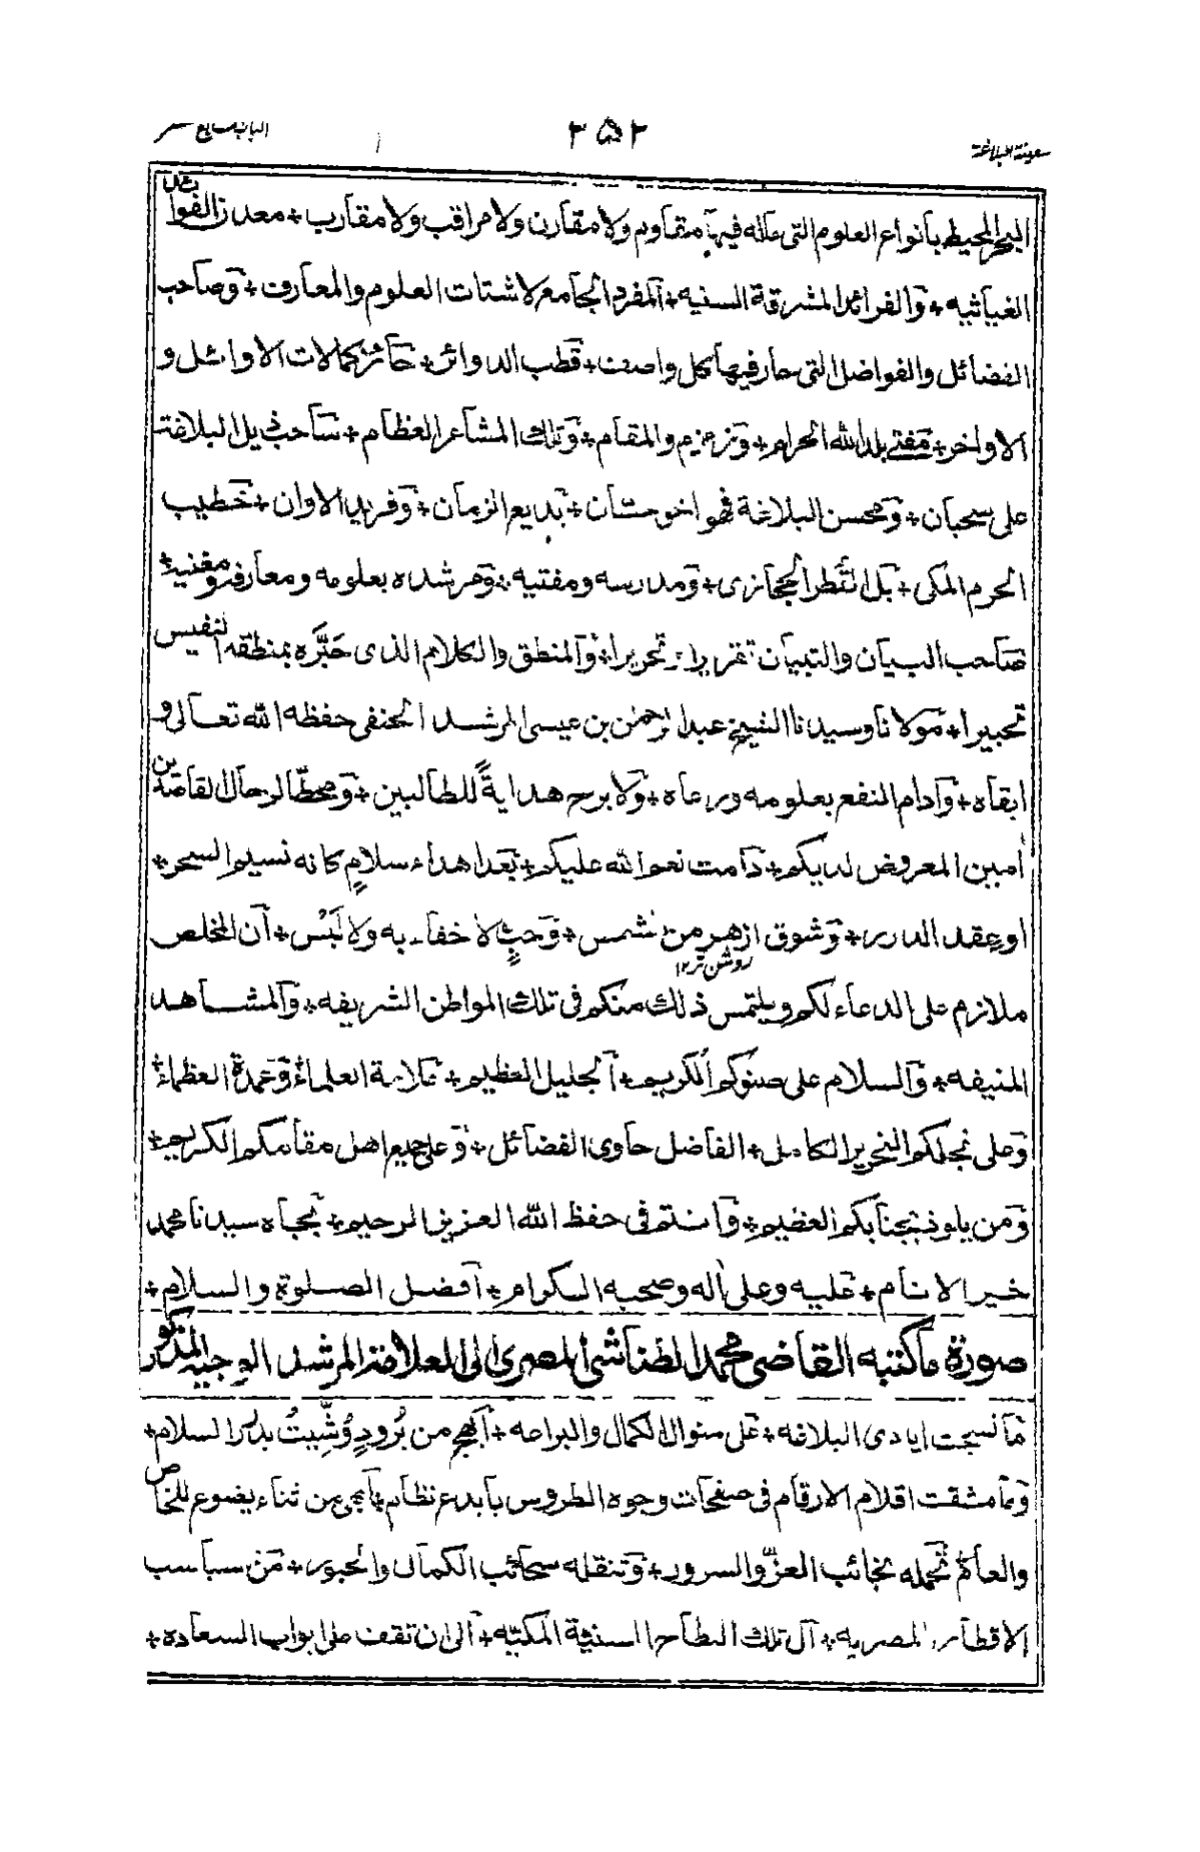 سفينة البلاغة
٢٥٢
الباب سابع عشر
البحر المحيط بأنواع العلوم التى ماله فيها مقاوم ولا مقارن ولا مراقب ولا مقارب + معدن الفوائد
الغياثيه + والفرائد المشرقة السنيه + المفرد الجامع لاشتات العلوم والمعارف + وصاحب
الفضائل والفواضل التى حار فيها كل واصف + قطب الدوائر + حائز كمالات الاوائل و
الاواخر + مفتى بلد الله الحرام + وزمزم والمقام + وتلك المشاعر العظام + ساحب ذيل البلاغة
على سحبان + ومحسن البلاغة فهو اخو حسّان + بديع الزمان + وفريد الاوان + خطيب
الحرم المكى + بل القُطر الحجازى + ومدرسه ومفتيه + ومرشده بعلومه ومعارفه ومغنيه +
صاحب البيان والتبيان تقريرا وتحريرا + والمنطق والكلام الذى حَبَّره بمنطقه النفيس
تحبيرا + مولانا وسيدنا الشيخ عبد الرحمن بن عيسى المرشد الحنفى حفظه الله تعالى و
ابقاه + وادام النفع بعلومه ورعاه + ولا برح هدايةً للطالبين + ومحطّا لرحال القاصدين
أمين المعروض لديكم + دامت نعم الله عليكم + بعد اهداء سلامٍ كانه نسيم السحر +
او عقد الدرر + وشوق ازهر من شمس + وحبٍ لا خفاء به ولا لَبْس + ان المخلص
روشن تر ١٢
ملازم على الدعاء لكم ويلتمس ذلك منكم فى تلك المواطن الشريفه + والمشاهد
المنيفه + والسلام على صنوكم الكريم + الجليل العظيم + علامة العلماء + وعمدة العظماء +
وعلى نجلكم النحرير الكامل + الفاضل حاوى الفضائل + وعلى جميع اهل مقامكم الكريم +
ومن يلوذ بجنابكم العظيم + وانتم فى حفظ الله العزيز الرحيم + بجاه سيدنا محمد
خير الانام + عليه وعلى أله وصحبه الكرام + افضل الصلوة والسلام +
صورة ماكتبه القاضى محمد الطناشى المصرى الى العلامة المرشد الوجيه المذكور
ما نسجت ايادى البلاغه + على منوال الكمال والبراعه + ابهج من بُرودٍ وُشِّيتْ بذكر السلام +
وما مشقت اقلام الارقام فى صفحات وجوه الطروس بابدع نظام + من ثناء يضوع للخاص
والعام + تحمله نجائب العزّ والسرور + وتنقله سحائب الكمال والحبور + من سباسب
الاقطار المصريه + الى تلك البطاح السنيّة المكيّه + الى ان تقف على ابواب السعاده +